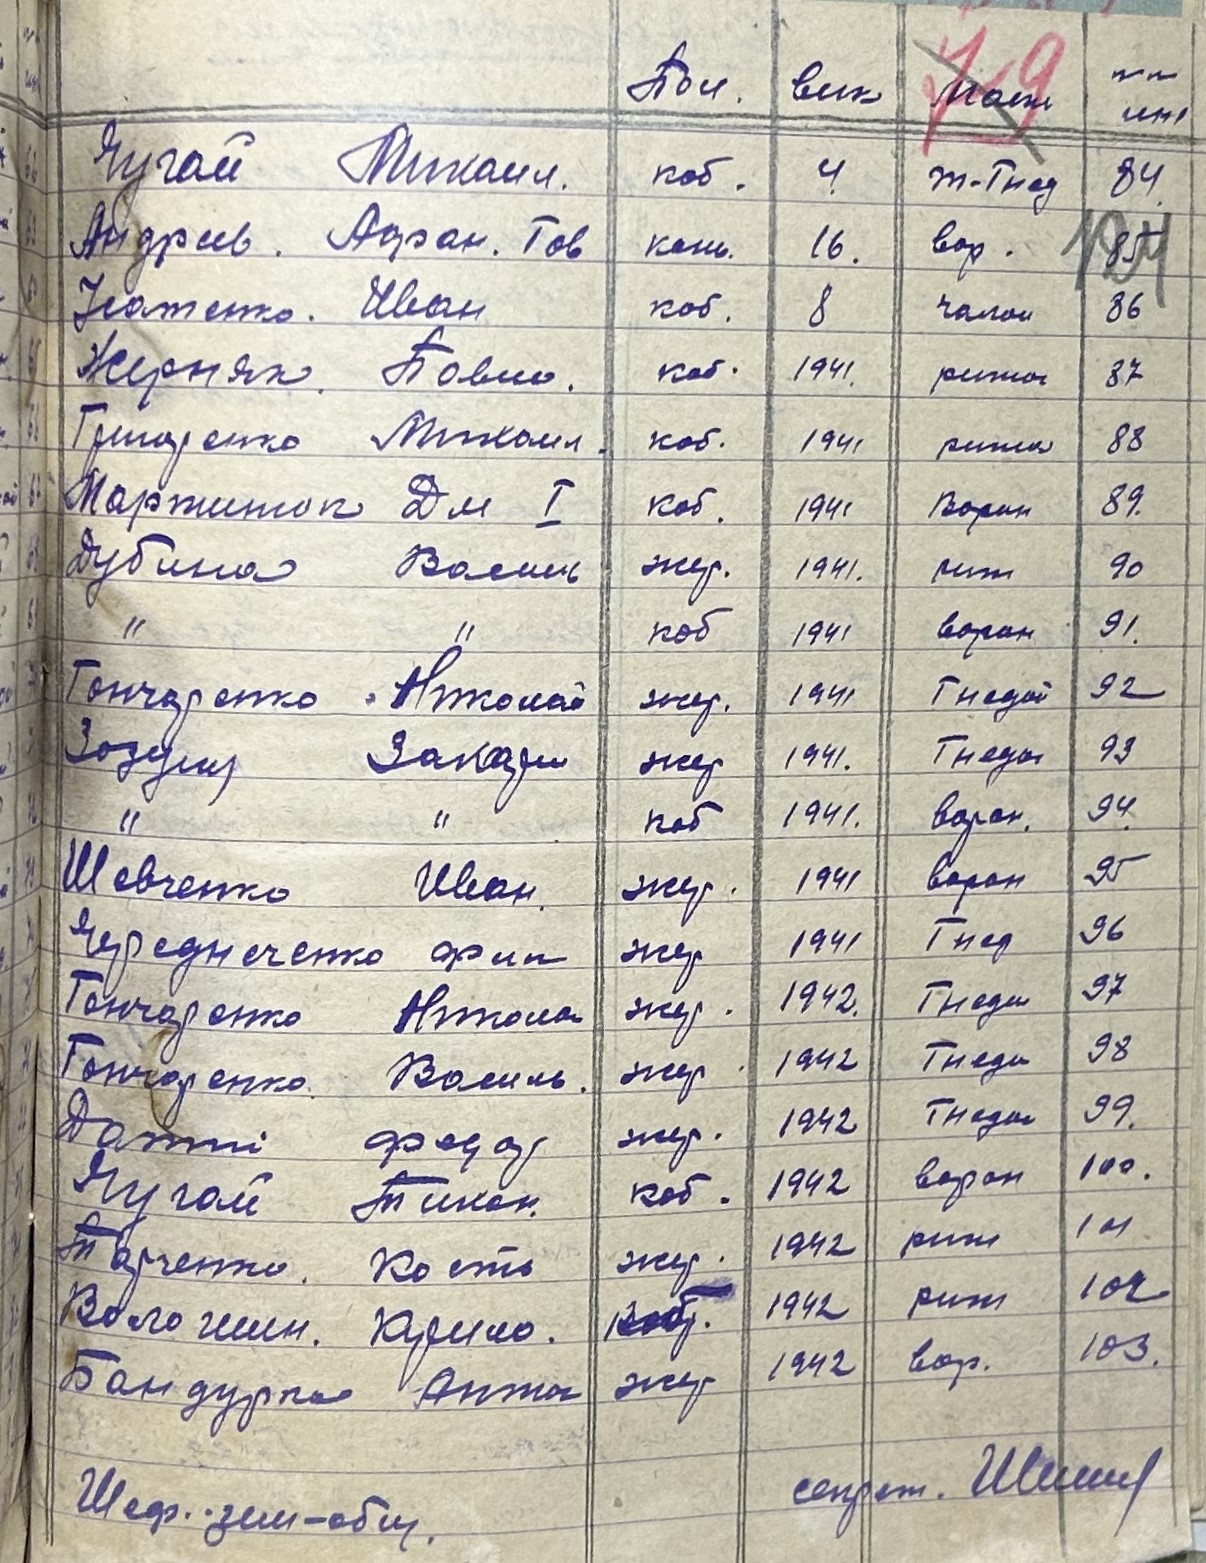 79
Пол. вик Маст
Чугай Михаил. коб. 4 т-Гнед 84.
Андреев. Адриан. Гов конь. 16. вор. 85
124
Иван коб. 8 чалои 86
Жерняк. Павло. коб. 1941. рижа 87
Григоренко Михаил. коб. 1941 рижа 88
Дм I коб. 1941 Воран 89.
Дубина Василь жер. 1941. риж 90
" " коб 1941 воран 91.
Гончаренко Николай жер. 1941 Гнедой 92
Зозуля Захари жер 1941. Гнедои 93
" " коб 1941. воран. 94.
Шевченко Иван. жер. 1941 воран 95
Чередниченко Фил жер 1941 Гнед 96
Гончаренко Никола жер. 1942. Гнедои 97
Гончаренко. Василь. жер. 1942 Гнеди 98
Федор жер. 1942 Гнедои 99.
Чугай Тихон. коб. 1942 воран 100.
Харченко. Кость жер. 1942 риж 101
Волошин. Кирило. 1942 риж 102
Бандурка Антон жер 1942 вор. 103.
Шеф. зем-общ. секрет.